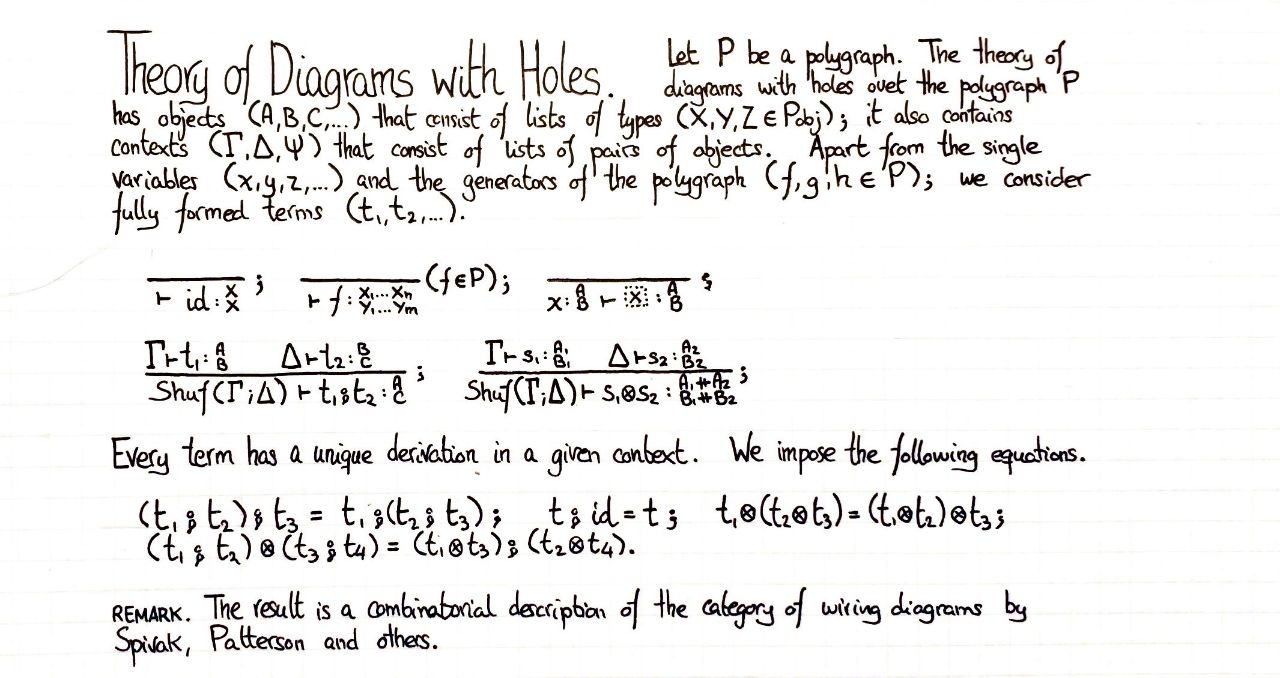 Theory of Diagrams with Holes. Let P be a polygraph. The theory of
diagrams with holes ovet the polygraph P
has objects (A,B,C,...) that consist of lists of types (X,Y,Z ∈ Pobj); it also contains
contexts (Γ,Δ,Ψ) that consist of lists of pairs of objects. Apart from the single
variables (x,y,z,...) and the generators of the polygraph (f,g,h ∈ P); we consider
fully formed terms (t₁,t₂,...).
⊢ id : X X ; ⊢ f : X₁...Xn Y₁...Ym (f∈P); x : A B ⊢ x : A B ;
Γ ⊢ t₁ : A B Δ ⊢ t₂ : B C ; Γ ⊢ s₁ : A₁ B₁ Δ ⊢ s₂ : A₂ B₂ ;
Shuf(Γ;Δ) ⊢ t₁⨟t₂ : A C Shuf(Γ;Δ) ⊢ s₁⊗s₂ : A₁⧺A₂ B₁⧺B₂
Every term has a unique derivation in a given context. We impose the following equations.
(t₁ ⨟ t₂) ⨟ t₃ = t₁ ⨟ (t₂ ⨟ t₃); t ⨟ id = t; t₁⊗(t₂⊗t₃) = (t₁⊗t₂)⊗t₃;
(t₁ ⨟ t₂) ⊗ (t₃ ⨟ t₄) = (t₁⊗t₃) ⨟ (t₂⊗t₄).
REMARK. The result is a combinatorial description of the category of wiring diagrams by
Spivak, Patterson and others.